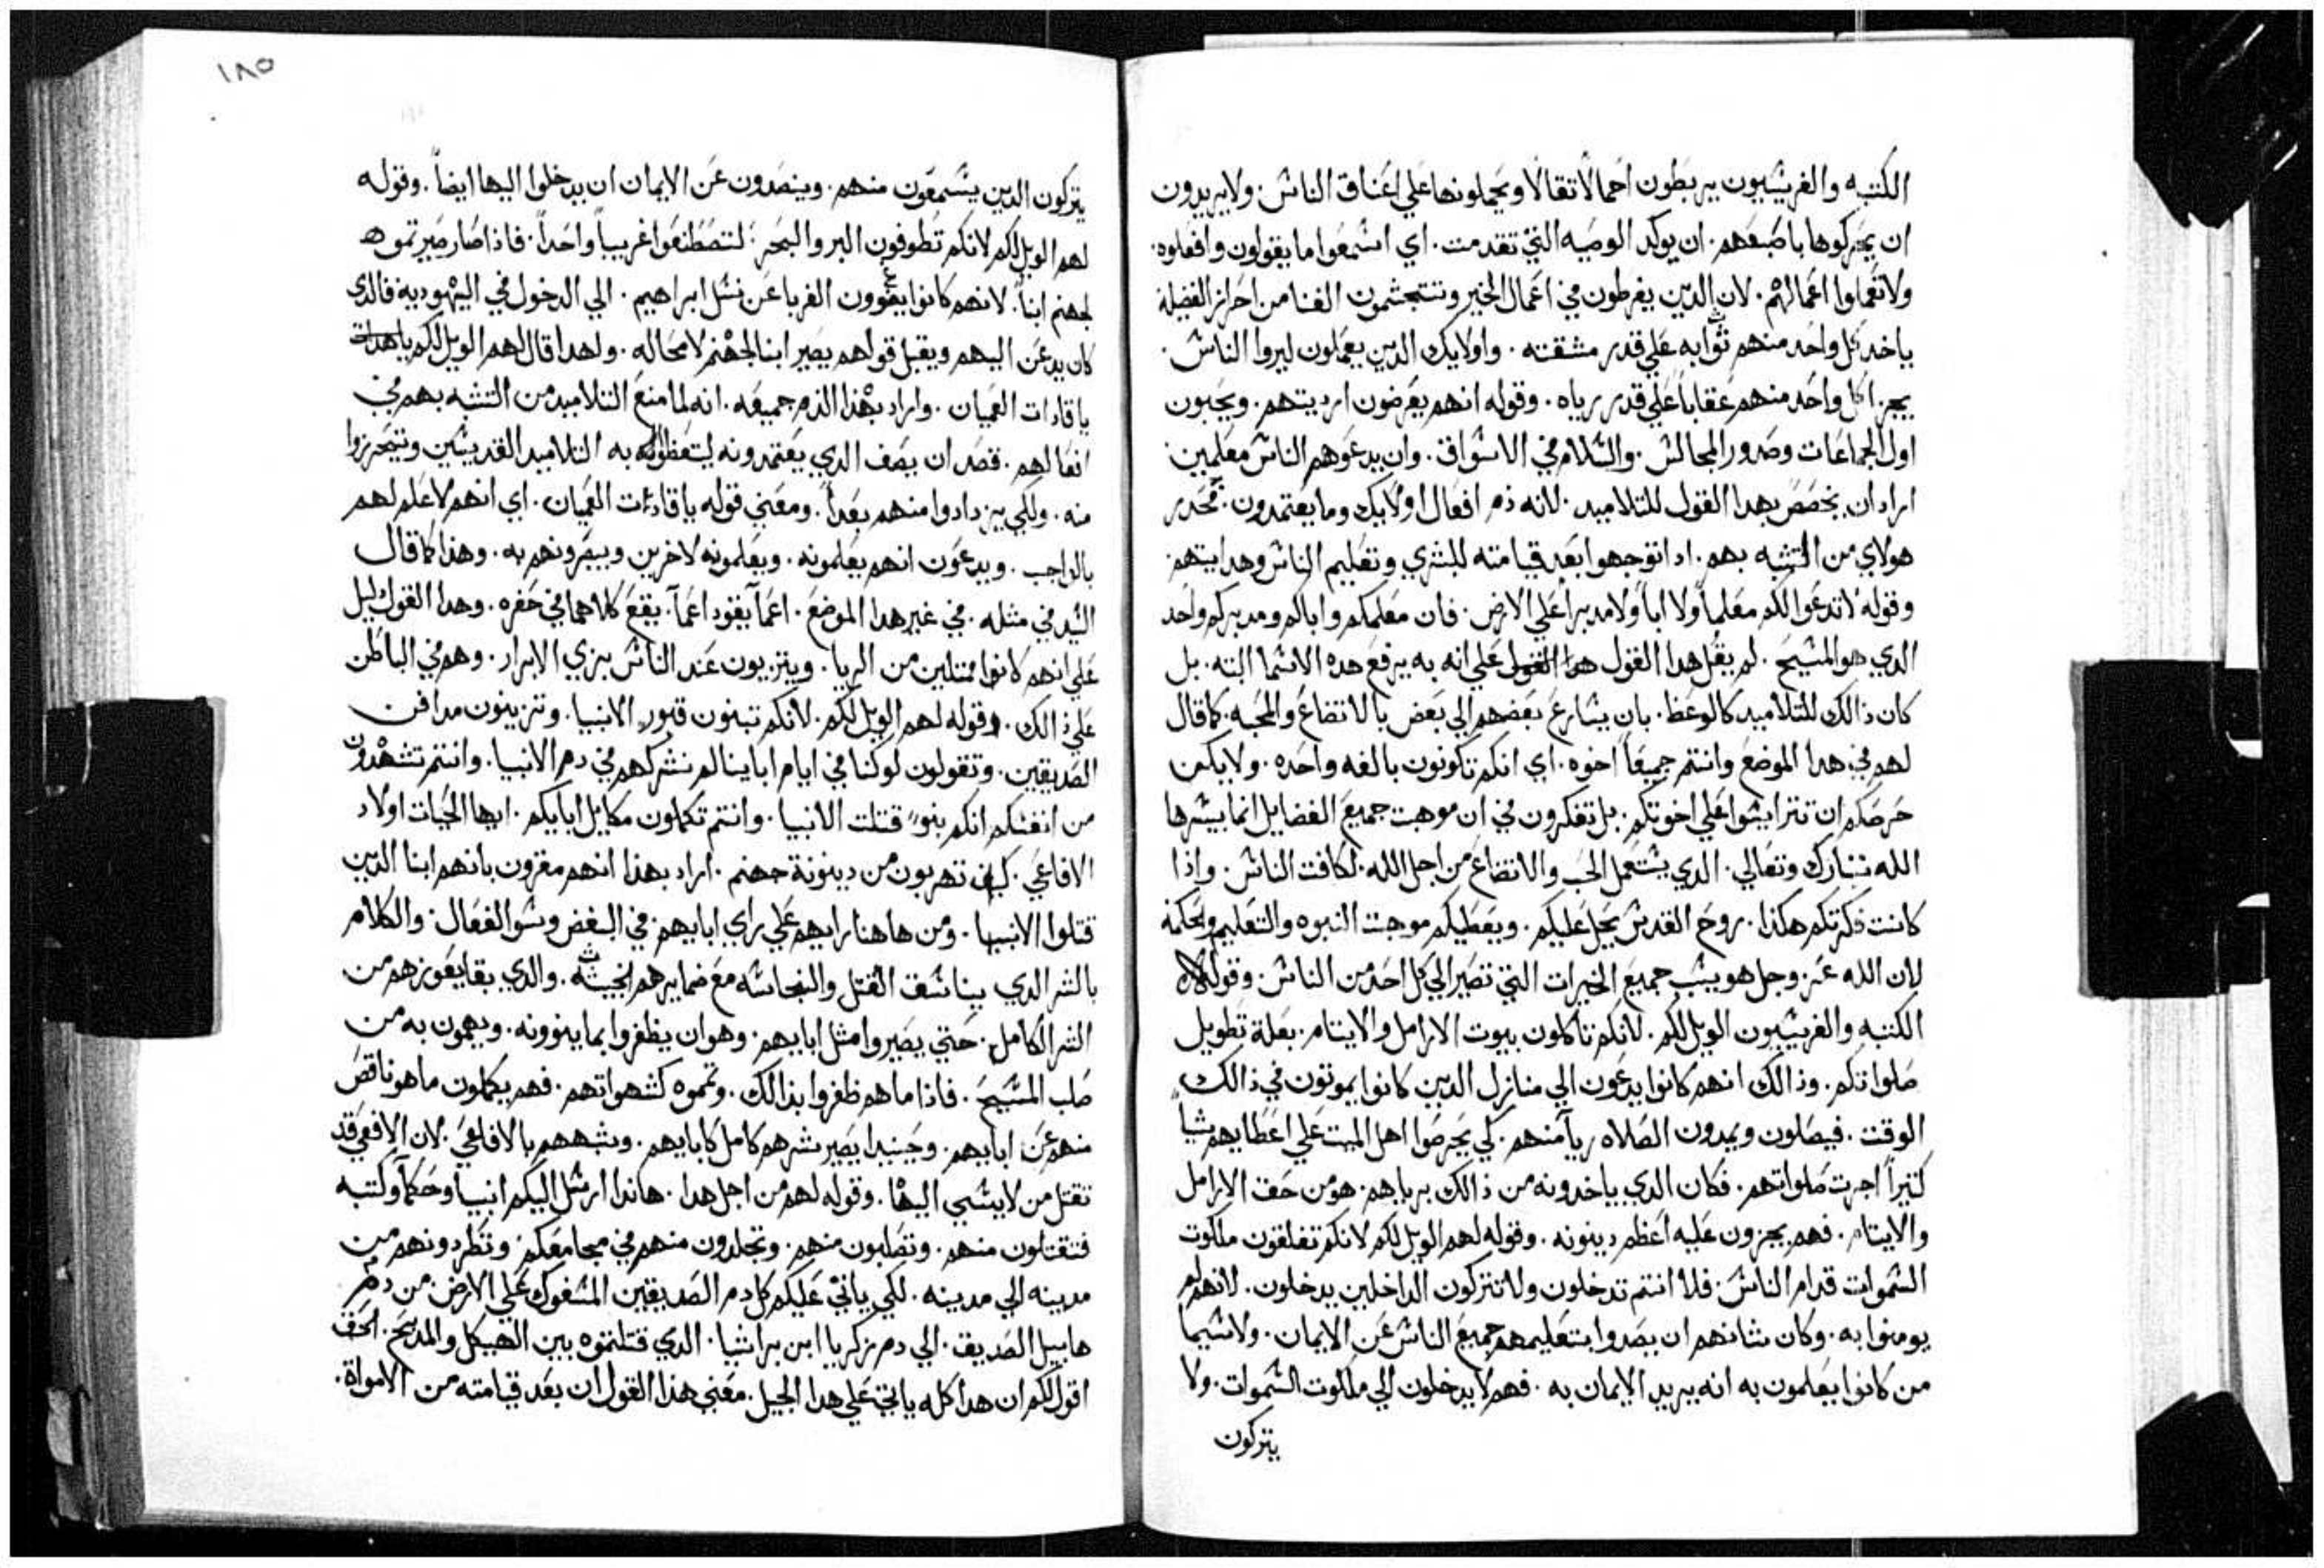 الكتبه والفريسيون يربطون احمالا تقالا ويحملونها علي اعناق الناس. ولا يريدون
ان يحركوها باصبعهم. ان يوكد الوصيه التي تقدمت. اي اسمعوا ما يقولون وافعلوه.
ولا تعملوا اعمالهم. لان الدين يفرطون في اعمال الخير وتتجشمون الغنا من احراز الفضيلة
ياخد كل واحد منهم ثوابه علي قدر مشقته. واولايك الدين يعملون ليروا الناس.
يجزا كل واحد منهم عقاباً علي قدر رياه. وقوله انهم يعرضون ارديتهم. ويحبون
اول الجماعات وصدور المجالس. والسلام في الاسواق. وان يدعوهم الناس معلمين.
اراد ان يخصص بهدا القول للتلاميد. لانه دم افعال اولايك وما يعتمدون. فحدر
هولاي من التشبه بهم. ادا توجهوا بعد قيامته للبشري وتعليم الناس وهدايتهم.
وقوله لا تدعوا لكم معلماً ولا اباً ولا مدبراً علي الارض. فان معلمكم واباكم ومدبركم واحد
الدي هو المسيح. لم يقل هدا القول علي انه به يرفع هده الاسما البته. بل
كان ذالك للتلاميد كالوعظ. بان يسارع بعضهم الي بعض بالاتضاع والمحبه. كما قال
لهم في هدا الموضع وانتم جميعاً اخوه. اي انكم تكونون بالفه واحده. ولا يكن
حرصكم ان تترايسوا علي اخوتكم. بل تفكرون في ان موهبت جميع الفضايل انما ييسرها
الله تبارك وتعالي. الدي يستعمل الحب والاتضاع من اجل الله. لكافت الناس. واذا
كانت فكرتكم هكذا. روح القدس يحل عليكم. ويعطيكم موهبت النبوه والتعليم والحكمة
لان الله عز وجل هو يسبب جميع الخيرات التي تصير الي كل احد من الناس. وقوله
الكتبه والفريسيون الويل لكم. لانكم تاكلون بيوت الارامل والايتام. بعلة تطويل
صلواتكم. وذالك انهم كانوا يدعون الي منازل الدين كانوا يموتون في ذالك
الوقت. فيصلون ويمدون الصلاه رياً منهم. كي يحرصوا اهل الميت علي اعطايهم شياً
كتيراً اجرت صلواتهم. فكان الدي ياخدونه من ذالك برياهم. هو من حق الارامل
والايتام. فهم يجزون عليه اعظم دينونه. وقوله لهم الويل لكم لانكم تغلقون ملكوت
السموات قدام الناس. فلا انتم تدخلون ولا تتركون الداخلين يدخلون. لانهم لم
يومنوا به. وكان شانهم ان يصدوا بتعليمهم جميع الناس عن الايمان. ولا سيما
من كانوا يعلمون به انه يريد الايمان به. فهم لا يدخلون الي ملكوت السموات. ولا
يتركون
١٨٥
يتركون الدين يسمعون منهم. وينصدون عن الايمان ان يدخلوا اليها ايضاً. وقوله
لهم الويل لكم لانكم تطوفون البر والبحر. لتصطنعوا غريباً واحداً. فاذا صار صيرتموه
لجهنم ابناً. لانهم كانوا يغوون الغربا عن نسل ابراهيم. الي الدخول في اليهودية فالدي
كان يدعن اليهم ويقبل قولهم يصير ابنا لجهنم لا محاله. ولهدا قال لهم الويل لكم يا هداة
يا قادات العميان. واراد بهذا الذم جميعه. انه لما منع التلاميد من التشبه بهم في
افعالهم. قصد ان يصف الدي يعتمدونه ليتعظوا به التلاميد القديسين ويتحرزوا
منه. ولكي يزدادوا منهم بعداً. ومعني قوله يا قادات العميان. اي انهم لا علم لهم
بالواجب. ويدعون انهم يعلمونه. ويعلمونه لاخرين ويبصرونهم به. وهذا كما قال
السيد في مثله. في غير هدا الموضع. اعماً يقود اعماً. يقع كلاهما في حفره. وهدا القول دليل
علي انهم كانوا ممتلين من الريا. ويتزيون عند الناس بزي الابرار. وهم في الباطن
علي ذالك. وقوله لهم الويل لكم. لانكم تبنون قبور الانبيا. وتزينون مدافن
الصديقين. وتقولون لو كنا في ايام اباينا لم نشركهم في دم الانبيا. وانتم تشهدون
من انفسكم انكم بنو قتلت الانبيا. وانتم تكملون مكايل ابايكم. ايها الحيات اولاد
الافاعي. كيف تهربون من دينونة جهنم. اراد بهذا انهم مقرون بانهم ابنا الدين
قتلوا الانبيا. ومن هاهنا رايهم علي راي ابايهم. في البغض وسو الفعال. والكلام
بالشر الدي يناسق القتل والنجاسه مع ضمايرهم الخبيثه. والدي بقا يعوزهم من
الشر الكامل. حتي يصيروا مثل ابايهم. وهو ان يظفروا بما ينوونه. ويهمون به من
صلب المسيح. فاذا ما هم ظفروا بذالك. وتمموه كشهواتهم. فهم يكملون ما هو ناقص
منهم عن ابايهم. وحينيدا يصير شرهم كامل كابايهم. وشبههم بالافاعي. لان الافعي قد
تقتل من لا يسي اليها. وقوله لهم من اجل هدا. هاندا ارسل اليكم انبيا وحكماً وكتبه
فتقتلون منهم. وتصلبون منهم. وتجلدون منهم في مجامعكم. وتطردونهم من
مدينه الي مدينه. لكي ياتي عليكم كل دم الصديقين المسفوك علي الارض. من دم
هابيل الصديق. الي دم زكريا ابن براشيا. الدي قتلتموه بين الهيكل والمدبح. الحق
اقول لكم ان هدا كله ياتي علي هدا الجيل. معني هذا القول ان بعد قيامته من الامواة.